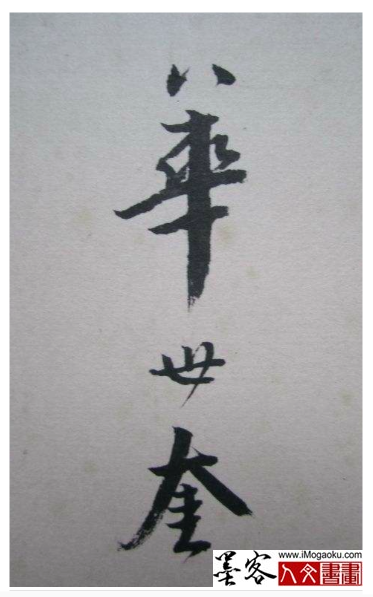 華世奎
墨客
www.iMogaoku.com
人文書畫